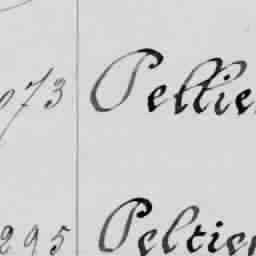 073 Pellie
295 Peltier